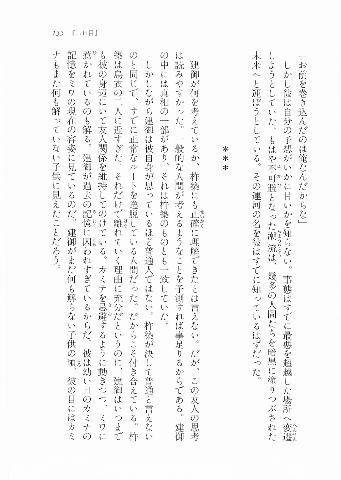 133 『二日目』
お前を巻き込んだのは俺なんだからな」
しかし彼は自分の予想がいかに甘いかを知らない。事態はすでに最悪を超越した場所へ変遷
しようとしていた。もはや不可避となった潮流は、幾多の人間たちを暗黒に塗りつぶされた
未来へと運ぼうとしている。その運河の名を彼はすでに知っているはずだった。
＊＊＊
建御が何を考えているか、杵築にも正確に理解できたとは言えない。だが、この友人の思考
は読みやすかった。一般的な人間が考えるようなことを予測すれば事足りるからである。建御
の中には真相の一部があり、それは杵築のものとも一致していた。
しかしながら建御は彼自身が思っているほど普通人ではない。杵築が決して普通と言えない
のと同じで、すでに正常なルートを逸脱している人間だった。だからこそ付き合えている。杵
築は鳥衣の二人に近すぎた。それだけで離れていく理由に充分だというのに、建御はいつまで
も彼の身辺にいて友人関係を維持しつづけている。カミナを忌避するように動きつつ、ミワに
惹かれているのも解る。建御が過去の記憶に囚われすぎているからだ。彼は幼い日のカミナの
記憶をミワの現在の容姿に見ているのだ。建御がまだ何も解らない子供の頃、彼の目にはカミ
ナもまた何も解っていない子供に見えたことだろう。